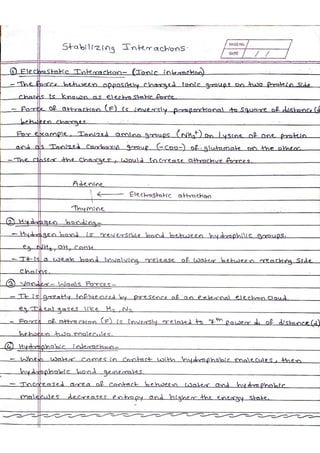 PAGE NO.
DATE / /
Stabilizing Interactions
① Electrostatic Interaction- (Ionic interaction)
- The force between oppositely charged ionic groups on two protein side
chains is known as electrostatic force.
- Force of attraction (F) is inversly propotional to square of distance (d
between charges
For example, Ionized amino groups (NH3+) on lysine of one protein
and as Ionized carboxyl group (-COO-) of glutamate on the other.
- The closer the charges, would increase attractive forces.
Adenine
Electrostatic attraction
Thymine
② Hydrogen bonding-
- Hydrogen bond is reversible bond between hydrophilic groups.
eg. NH2, OH, CONH
- It is a weak bond involving release of water between reacting side
chains.
③ Vander- Waals Forces-
- It is greatly influenced by presence of an external electron cloud.
eg. Ideal gases like H2, N2
- Force of attraction (F) is inversly related to 7th power of distance (d)
between two molecules.
④ Hydrophobic Interaction-
- When water comes in contact with hydrophobic molecules, then
hydrophobic bond generates.
- Increased area of contact between water and hydrophobic
molecules decreases entropy and higher the energy state.